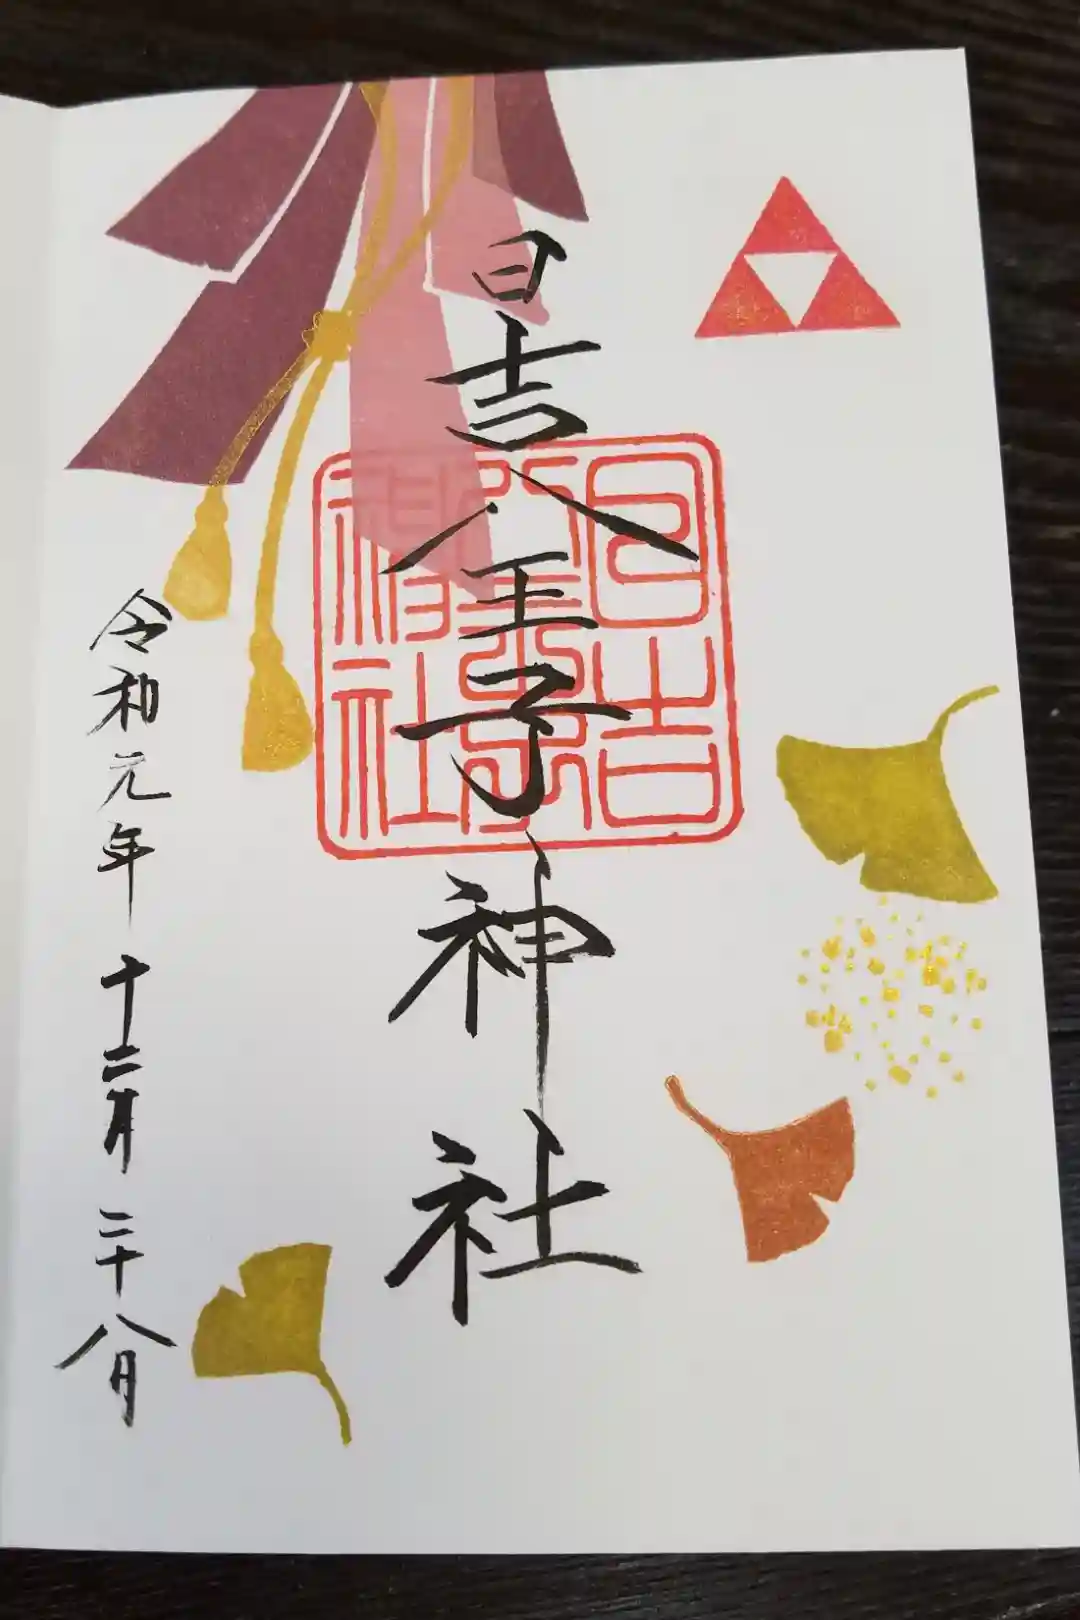 日吉八王子神社
日吉
八王子
神社
令和元年十二月二十八月